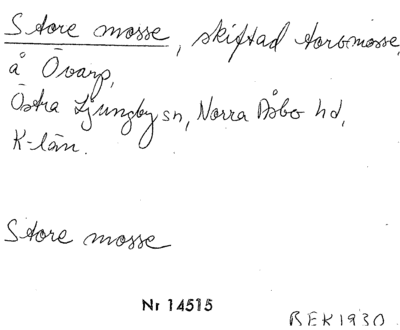 Store mosse, skiftad torvmosse,
å Övarp,
Östra Ljungby sn, Norra Åsbo hd,
K-län.
Store mosse
Nr 14515
BEK1930.